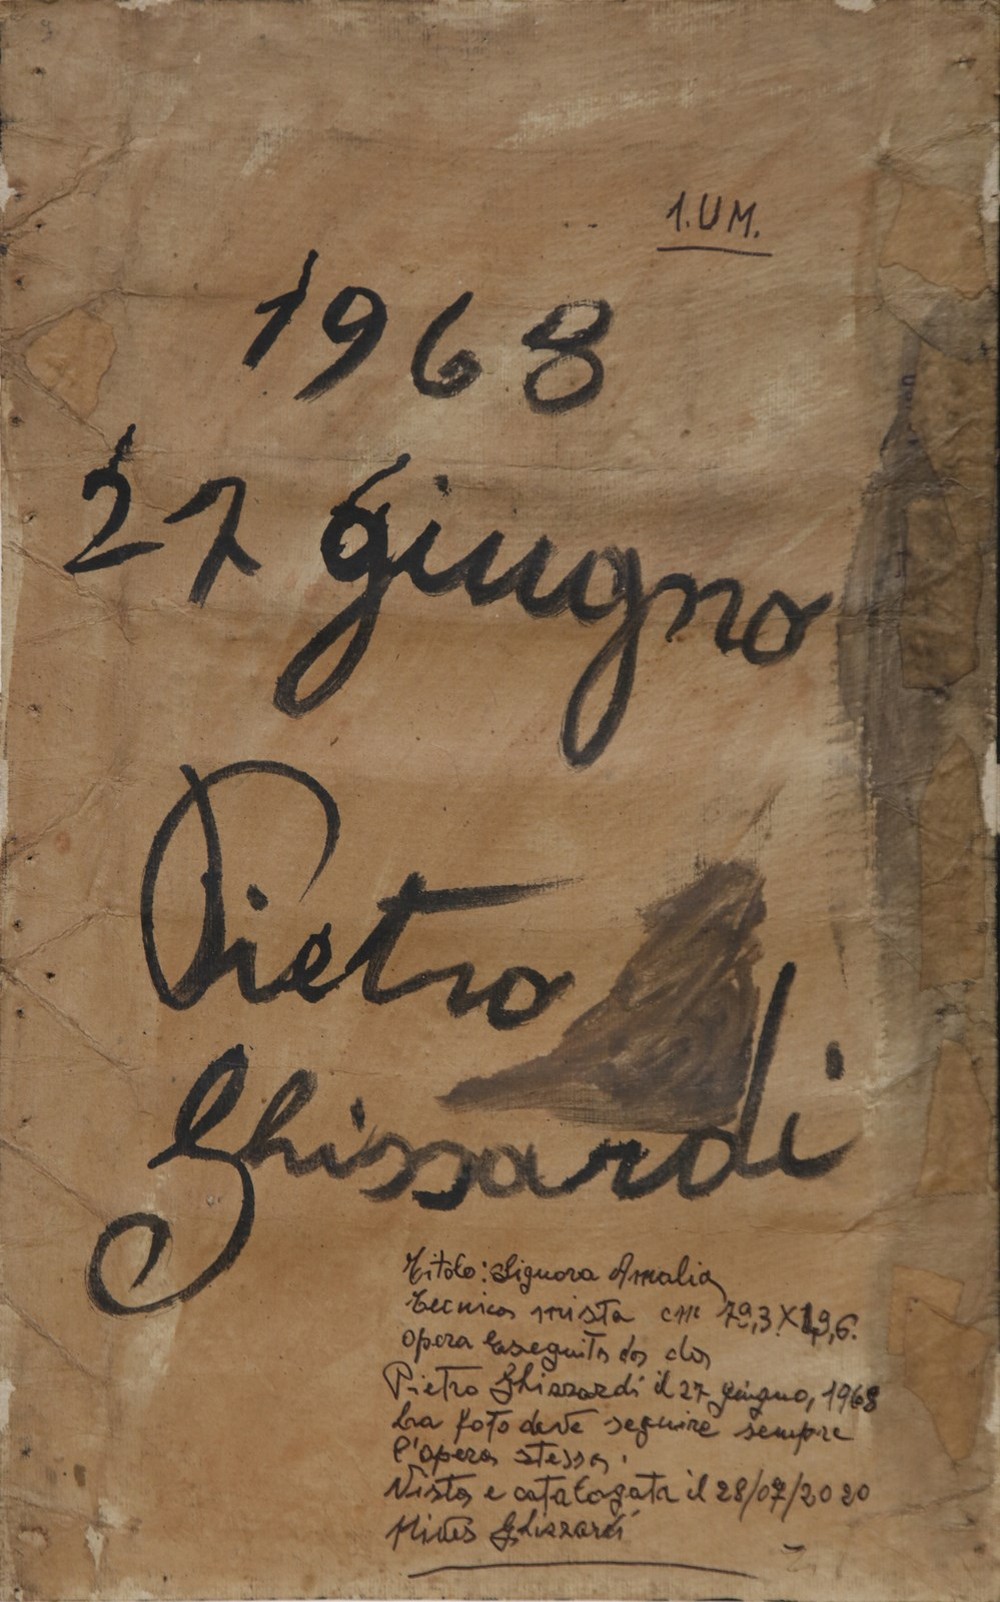 1.UM.
1968
27 giugno
Pietro
Ghissardi
Titolo: Signora Amalia
Tecnica mista cm
opera eseguita da
Pietro Ghizzardi il 27 giugno, 1968
La foto deve seguire sempre
l'opera stessa.
Vista e catalogata il 28/07/2020
Ghizzardi